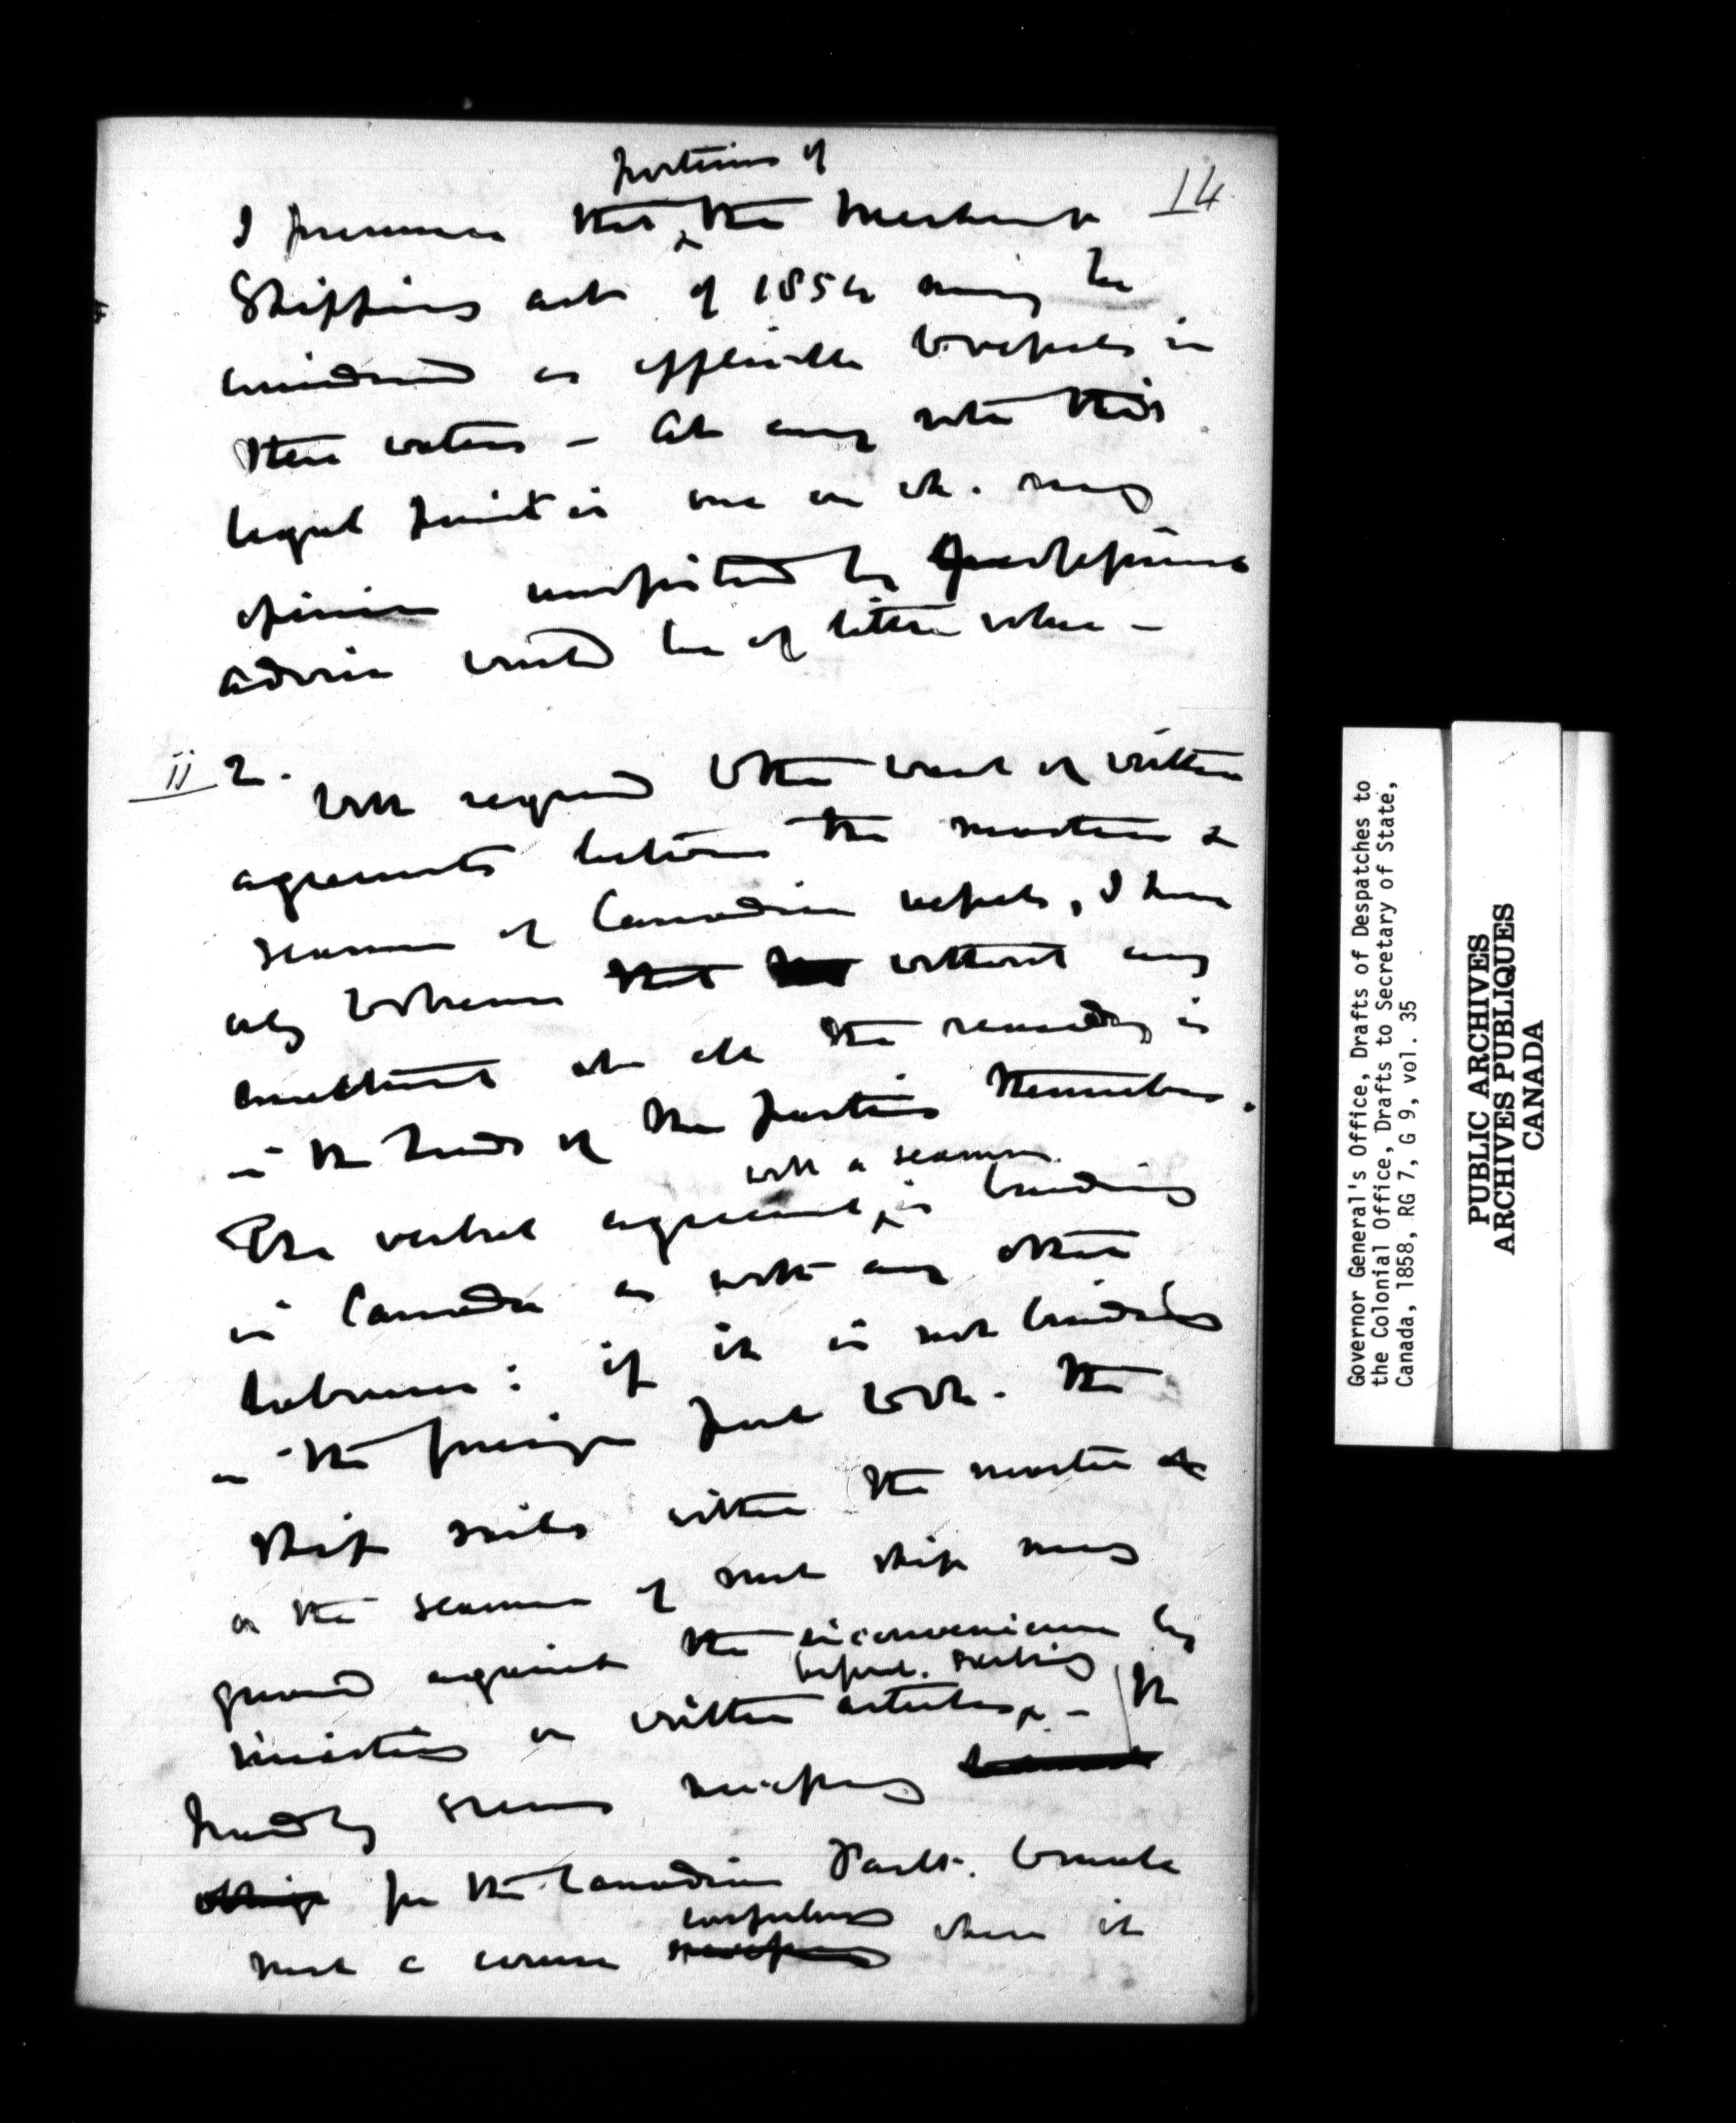 14
portions of
I presume that ^ the Merchant
Shipping act of 1854 may be
considered as applicable to vessels in
these waters - At any rate this
legal point is one on wh. my
opinion unassisted by professional
advice would be of little value -
ii 2. With regard to the want of written
agreements between the masters &
seamen of Canadian vessels, I have
only to observe that without any
enactment at all the remedy is
in the hands of the parties themselves.
with a seaman
The verbal agreement ^ is binding
in Canada as with any other
labourer: if it is not binding
in the foreign port to wh. the
ship sails either the master
or the seamen of such ship may
guard against the inconvenience by
before sailing
insisting on written articles ^ - It
hardly seems necessary
for the Canadian Parlt. to make
compulsory
such a course necessary where it
Governor General's Office, Drafts of Despatches to
the Colonial Office, Drafts to Secretary of State,
Canada, 1858, RG 7, G 9, vol. 35
PUBLIC ARCHIVES
ARCHIVES PUBLIQUES
CANADA